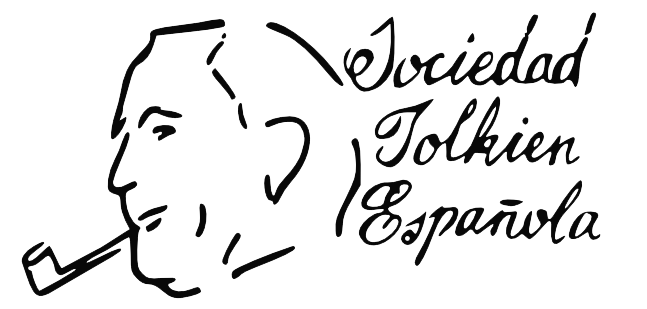 Sociedad
Tolkien
Española